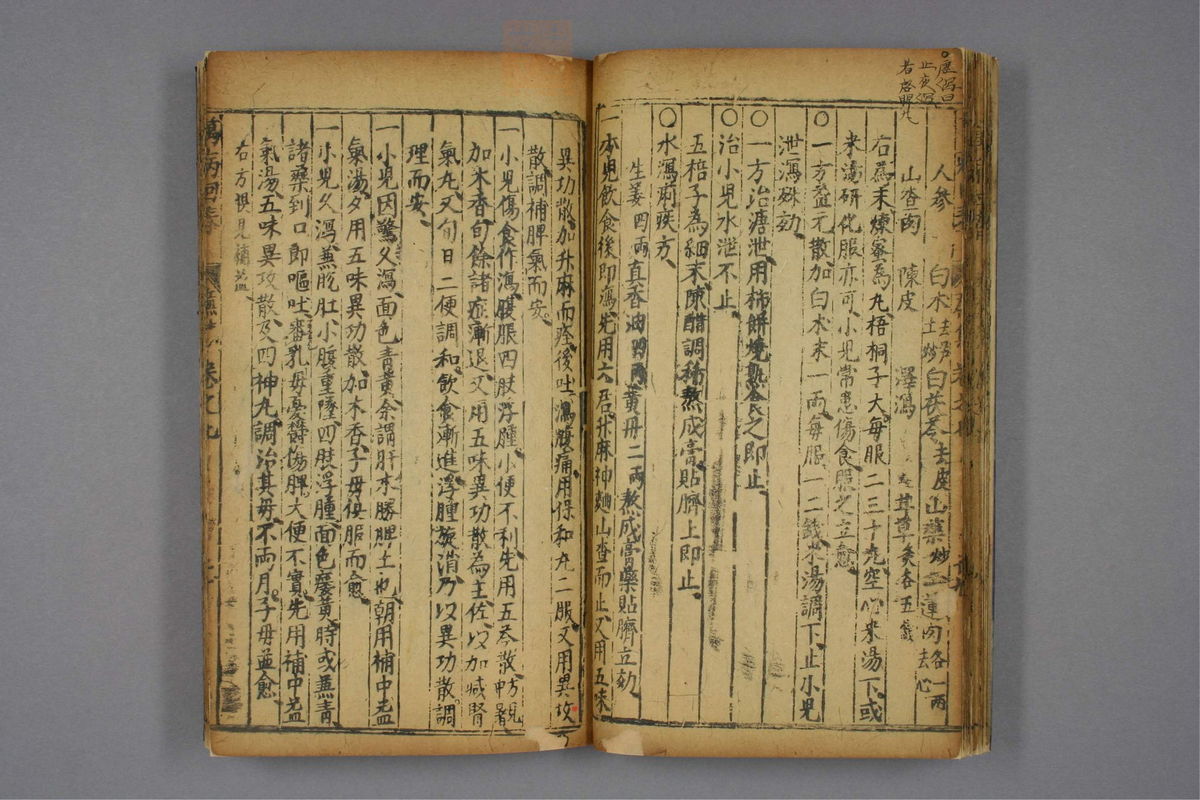 瀉
止瀉
若啓脾丸
人參 白术去芦土炒 白茯苓去皮 山藥炒 蓮肉去心各一兩
山查肉 陳皮 澤瀉 甘草炙各五錢
右爲末煉蜜爲丸梧桐子大每服二三十丸空心米湯下或
米湯研化服亦可小兒常患傷食服之立愈
〇一方益元散加白朮末一兩每服一二錢米湯調下止小兒
泄瀉殊効
〇一方治溏泄用柿餅燒熟食之即止
〇治小兒水泄不止
五棓子為細末陳醋調稀熬成膏貼臍上即止
〇水瀉痢疾方
生姜四兩 真香油四兩 黃丹二兩 熬成膏藥貼臍立効
一小兒飲食後即瀉先用六君升麻神麯山查而止又用五味
異功散加升麻而痊後吐瀉腹痛用保和丸二服又用異攻
散調補脾氣而安
一小兒傷食作瀉腹脹四肢浮腫小便不利先用五苓散
加木香旬餘諸症漸退又用五味異功散為主佐以加減腎
氣丸又旬日二便調和飲食漸進浮腫旋消乃以異功散調
理而安
一小兒因驚久瀉面色青黃余謂肝木勝脾土也朝用補中益
氣湯夕用五味異功散加木香子母俱服而愈
一小兒久瀉兼脫肛小腹重墜四肢浮腫面色痿黃時或兼青
諸藥到口即嘔吐審乳母憂鬱傷脾大便不實先用補中益
氣湯五味異攻散及四神丸調治其母不兩月子母並愈
右方俱見補益
萬病回春 卷之七